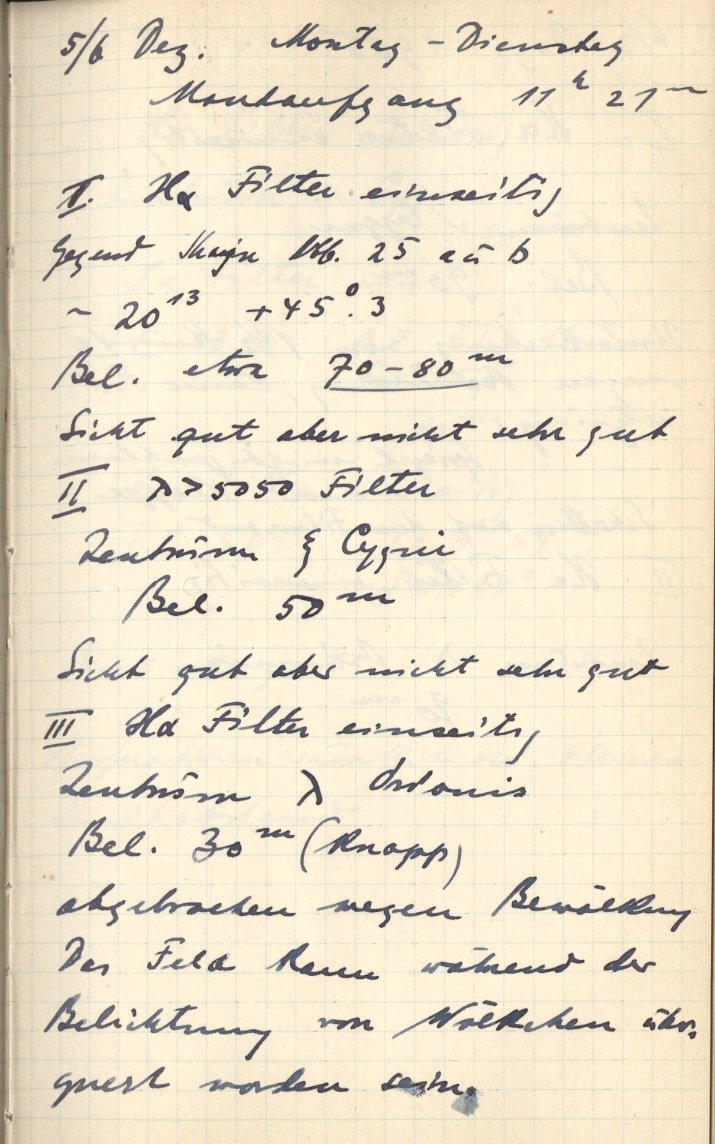 5/6 Dez. Montag – Dienstag
Mondaufgang 11ʰ 21ᵐ
I. Hα Filter einseitig
Gegend Abb. 25 a u b
~ 20¹³ +45°.3
Bel. etwa 70–80ᵐ
Sicht gut aber nicht sehr gut
II λ>5050 Filter
Zentrum ξ Cygni
Bel. 50ᵐ
Sicht gut aber nicht sehr gut
III Hα Filter einseitig
Zentrum λ Orionis
Bel. 30ᵐ (knapp)
abgebrochen wegen Bewölkung
Das Feld kann während der
Belichtung von Wölkchen über-
quert worden sein.